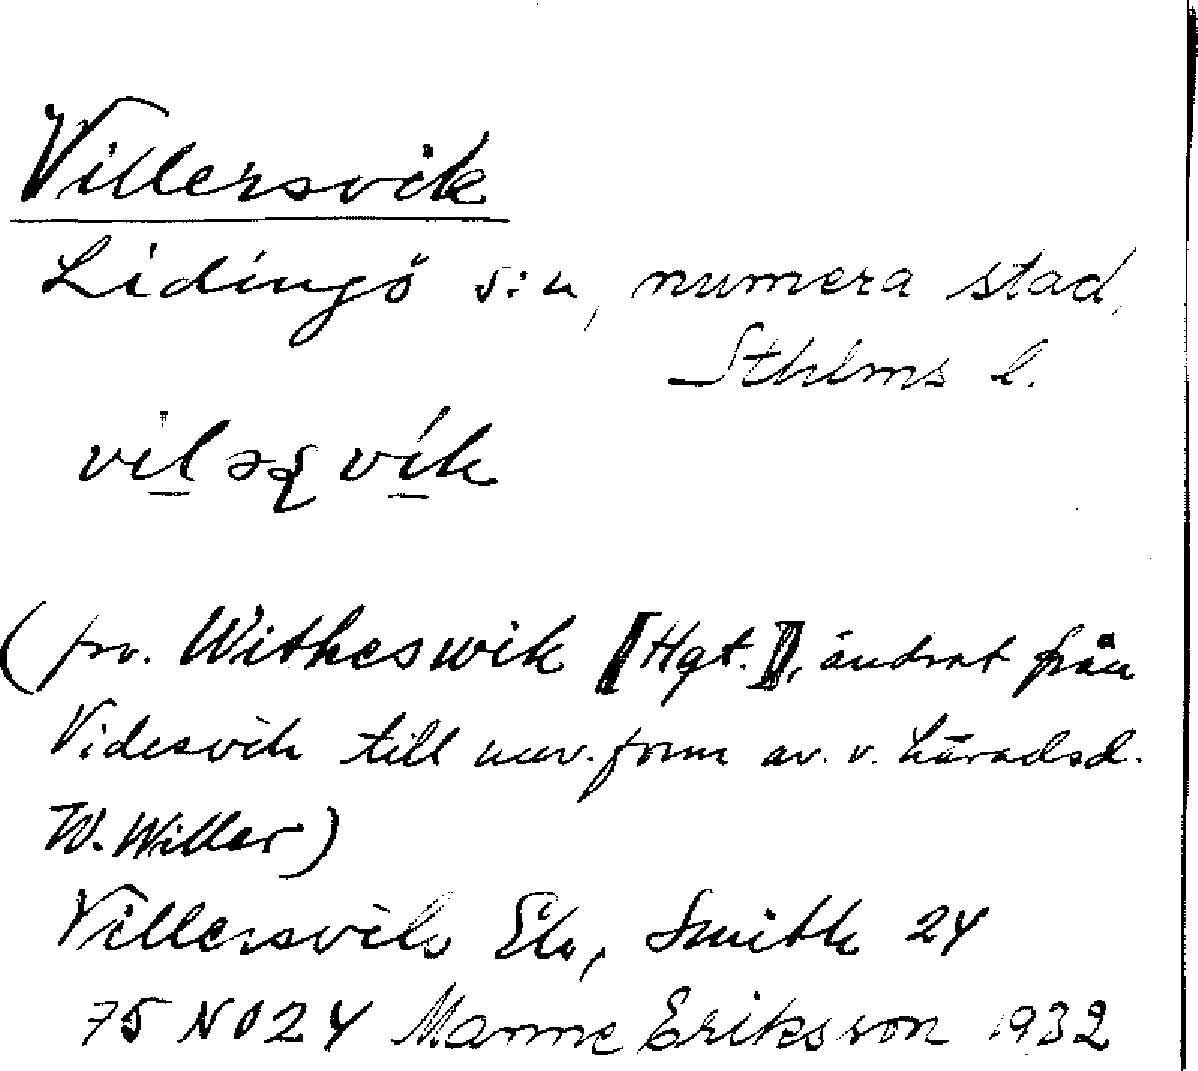 Villersvik
Lidingö s:n, numera stad,
Sthlms l.
vik
(frv. Witheswik [Hgt.], ändrat från
Videsvik till nuv. form av v. häradsd.
W. Willer)
Villersvik Ek, Smith 24
75 NO24 Manne Eriksson 1932